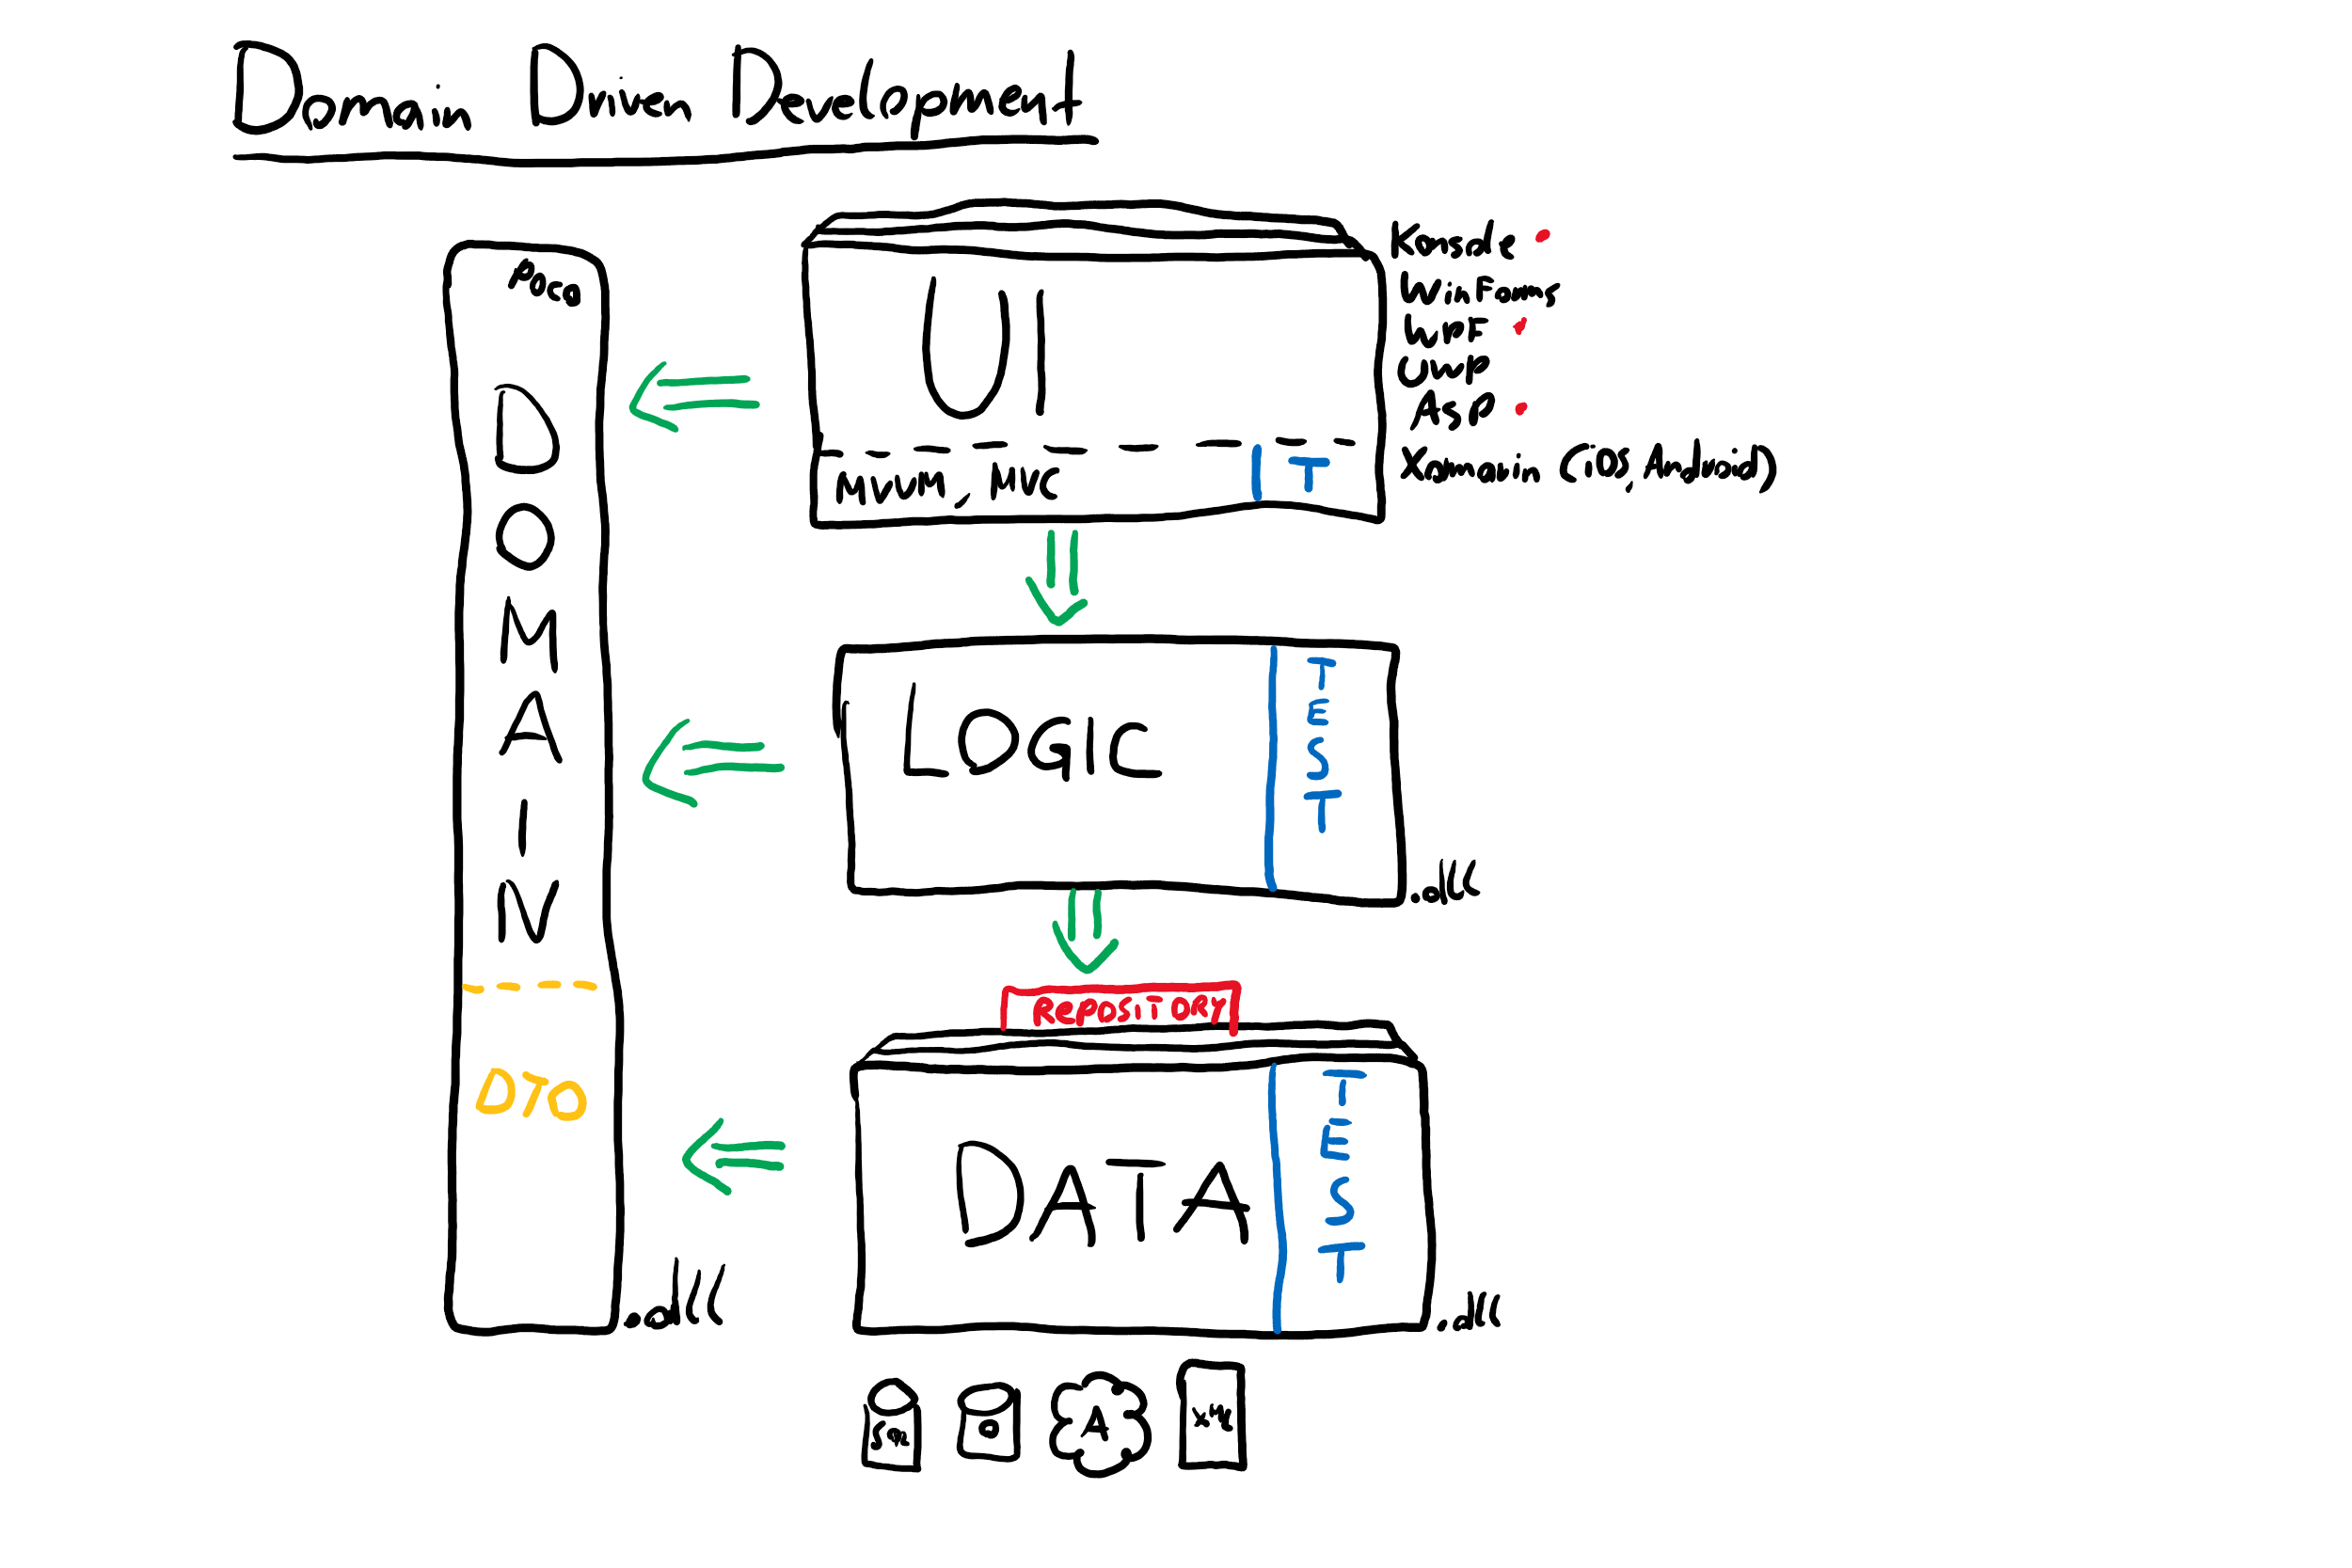 Domain Driven Development
Poco
DOMAIN
DTO
.dll
UI
MVVM, MVC
T
Konsole
WinForms
WPF
UWP
ASP
Xamarin (iOS, Android)
LOGIC
TEST
.dll
REPOSITORY
DATA
TEST
.dll
A
XML